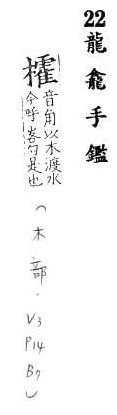 22龍龕手鑑
㩴音角以木渡水
今呼畧勺是也
(木部.V3P14B7)